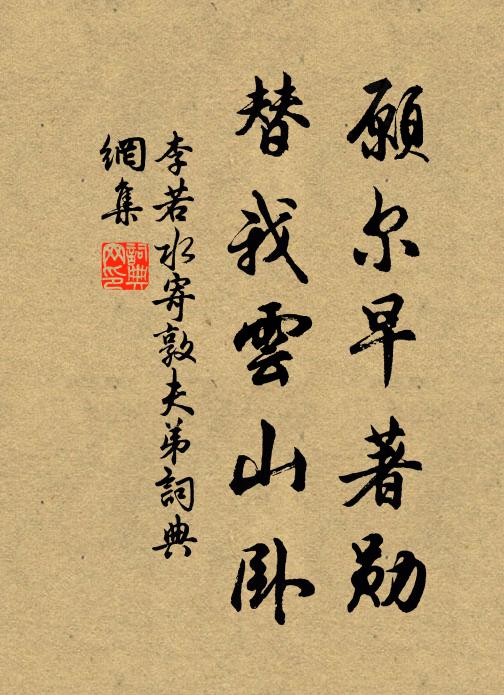 願尔早著勋
替我雲山卧
李若水寄敦夫弟詞典
網集
詞典
网印